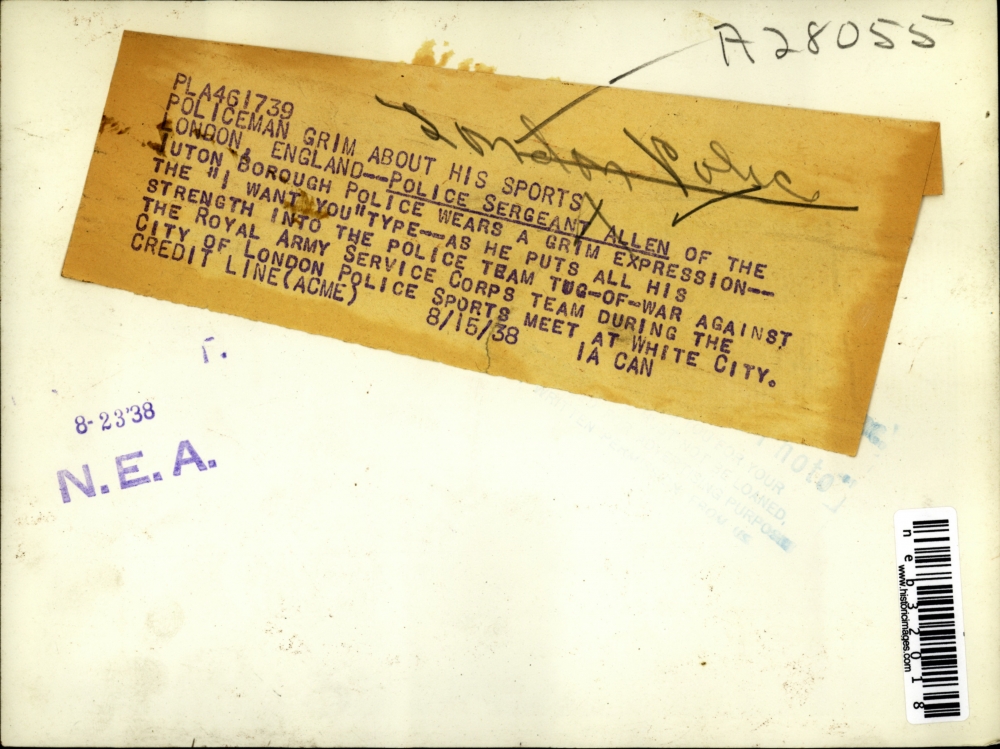 A28055
London Polic
PLA461739
POLICEMAN GRIM ABOUT HIS SPORTS
LONDON, ENGLAND--POLICE SERGEANT ALLEN OF THE
LUTON BOROUGH POLICE WEARS A GRIM EXPRESSION--
THE "I WANT YOU"TYPE--AS HE PUTS ALL HIS
STRENGTH INTO THE POLICE TEAM TUG-OF-WAR AGAINST
THE ROYAL ARMY SERVICE CORPS TEAM DURING THE
CITY OF LONDON POLICE SPORTS MEET AT WHITE CITY.
CREDIT LINE(ACME) 8/15/38 IA CAN
8-23'38
N.E.A.
FOR YOUR
LOANED,
PURPOSE
neb32018
www.historicimages.com